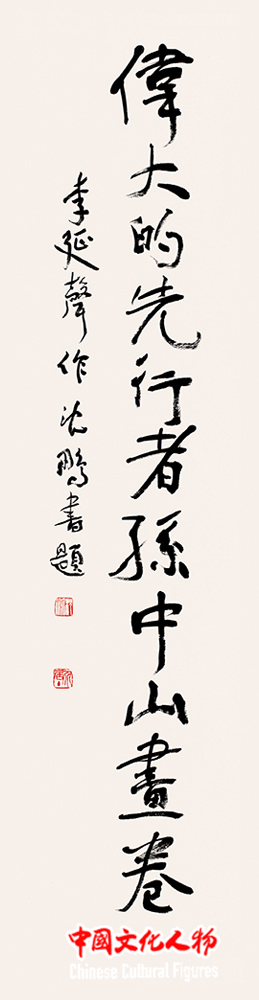 偉大的先行者孫中山畫卷
李延聲作沈鵬書題
中國文化人物
Chinese Cultural Figures